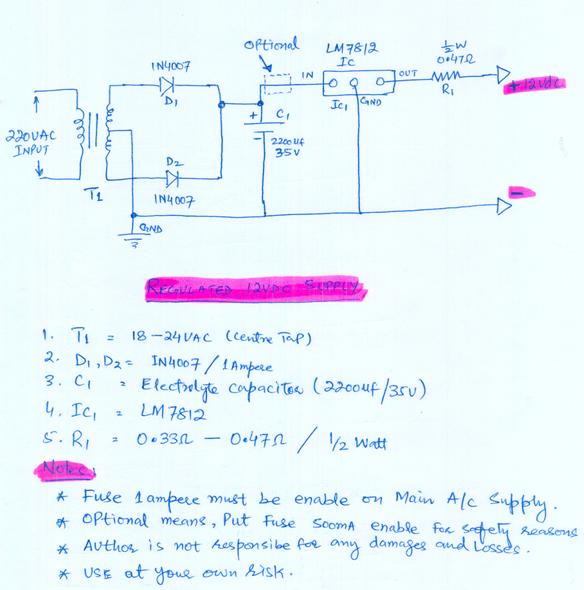 Optional
LM7812
IC
½W
0.47Ω
1N4007
D1
IN
OUT
R1
+12Vdc
220VAC
INPUT
IC1
GND
+
C1
-
2200uf
35V
D2
1N4007
T1
-
GND
REGULATED 12VDC SUPPLY
1. T1 = 18-24VAC (Centre Tap)
2. D1, D2 = IN4007 / 1 Ampere
3. C1 = Electrolyte capacitor (2200uf/35V)
4. IC1 = LM7812
5. R1 = 0.33Ω — 0.47Ω / 1/2 Watt
Note:
* Fuse 1 ampere must be enable on Main A/C Supply.
* OPtional means, Put Fuse 500mA enable for safety reasons
* Author is not responsibe for any damages and Losses.
* USE at your own risk.